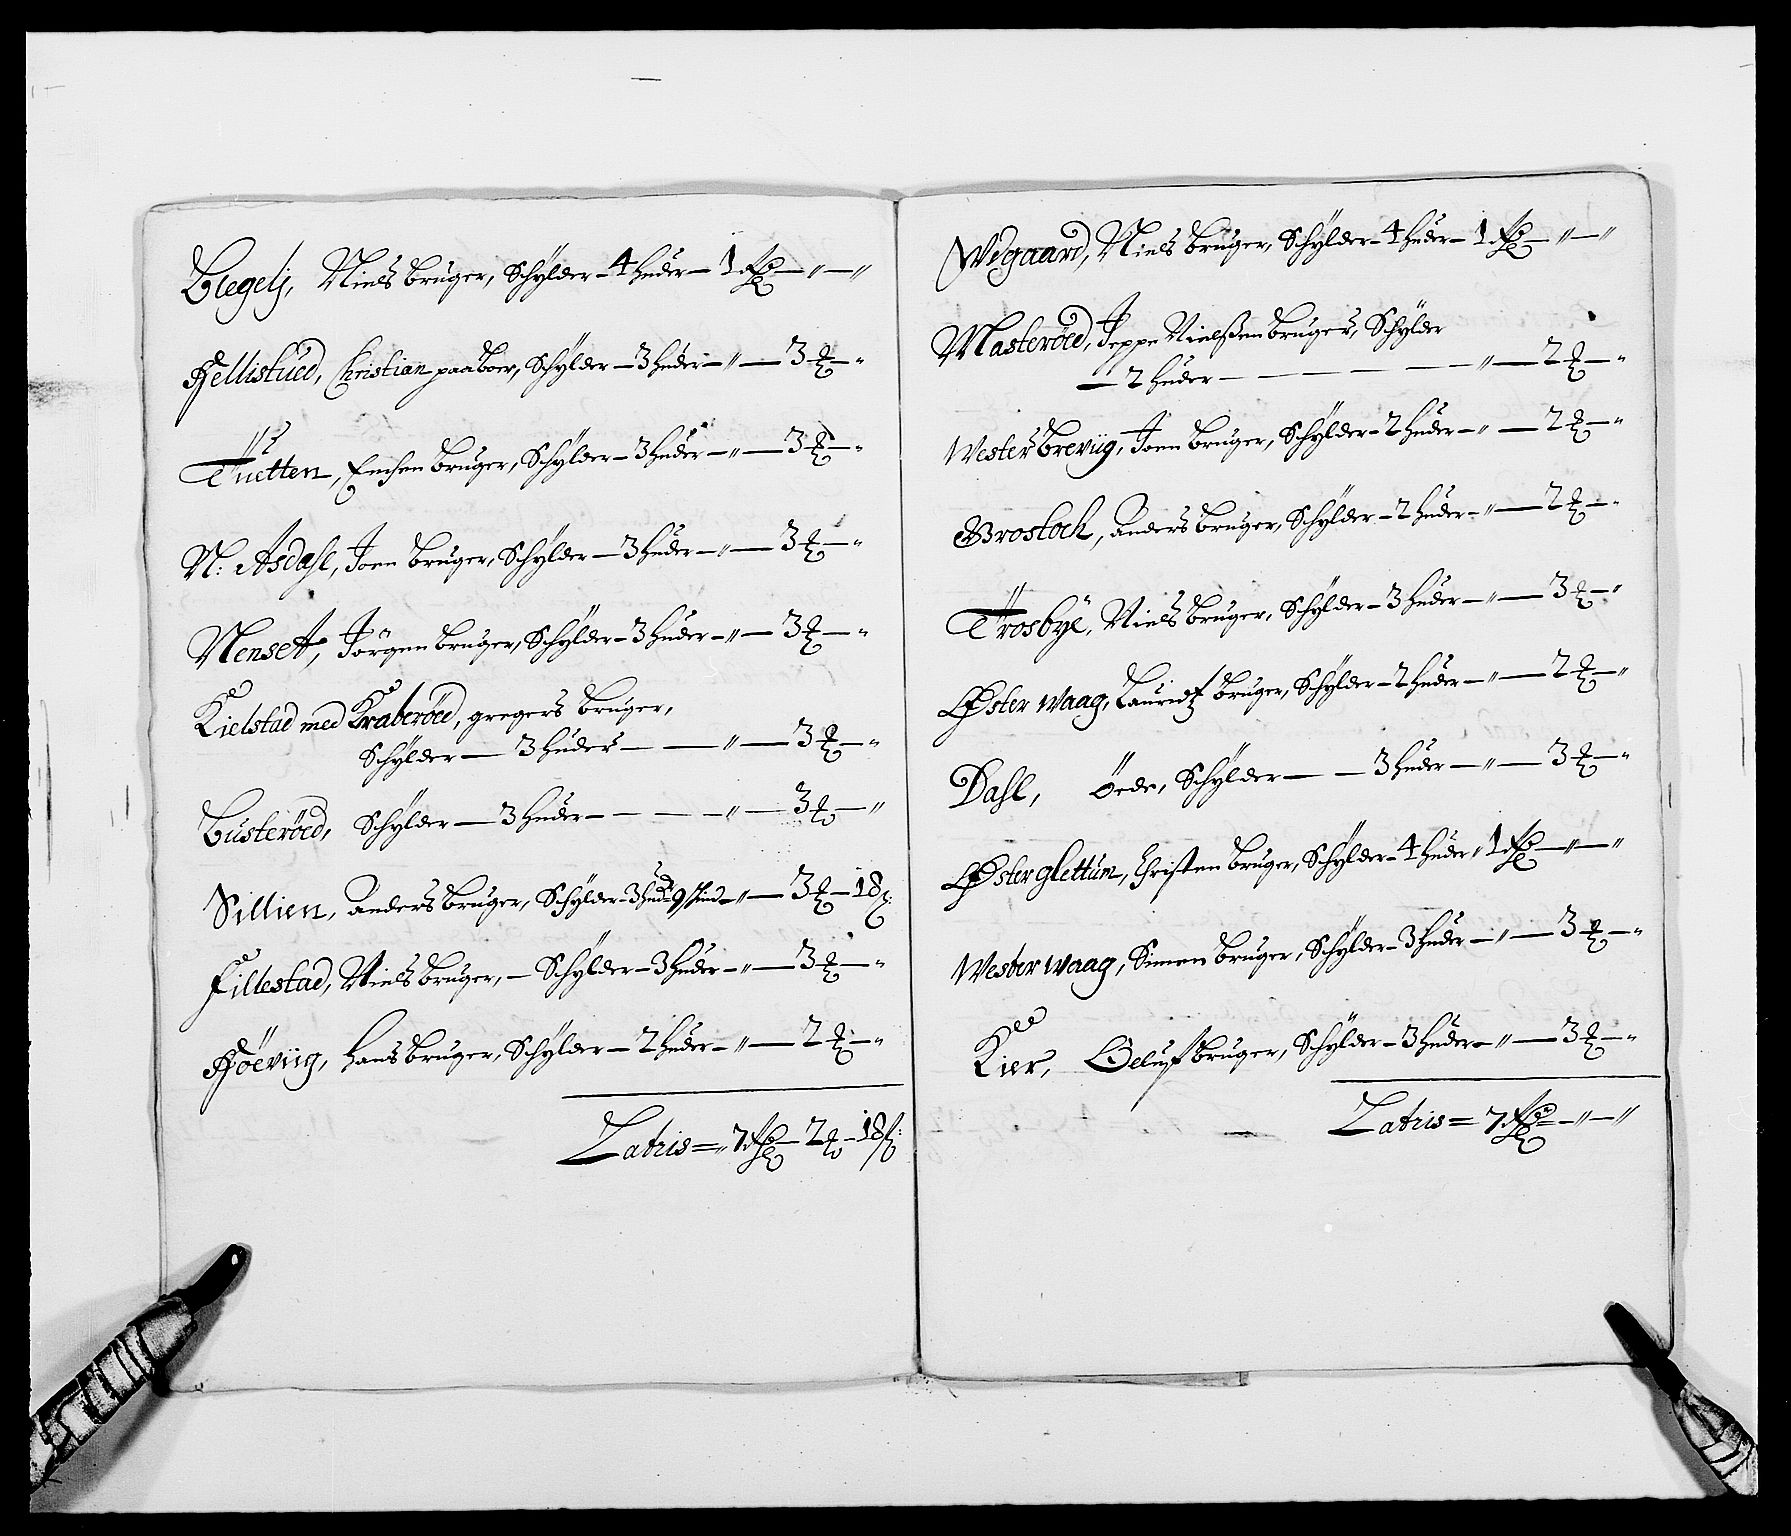 Blegelj, Niels bruger, Schÿlder – 4 huder – 1 Rdr – " – "
Hellistued, Christian paaboer, Schÿlder – 3 huder – " – 3 ℔ – "
Tuetten, Ensen bruger, Schÿlder – 3 huder – " – 3 ℔ – "
N: Asdahl, Joen bruger, Schÿlder – 3 huder – " – 3 ℔ – "
Nensett, Jörgen bruger, Schÿlder – 3 huder – " – 3 ℔ – "
Kielstad med Kraberöed, gregers bruger,
Schÿlder – 3 huder – – " – 3 ℔ – "
Busteröed, Schÿlder – 3 huder – – – " – 3 ℔ – "
Sillien, Anders bruger, Schÿlder – 3 hud 9 skind – " – 3 ℔ – 18 ß:
Fillestad, Niels bruger, – Schÿlder – 3 huder – " – 3 ℔ – "
Höeviig, Hans bruger, Schÿlder – 2 huder – " – 2 ℔ – "
Latris = " 7 Rdr – 2 ℔ – 18 ß:
Wegaard, Niels bruger, Schÿlder – 4 huder – 1 Rdr – " – "
Masteröed, Jeppe Nielßen bruger, Schÿlder
– 2 huder – – – – – " – 2 ℔ – "
Wester breviig, Joen bruger, Schÿlder – 2 huder – " – 2 ℔ – "
Brostoch, Anders bruger, Schÿlder – 2 huder – " – 2 ℔ – "
Trosbÿe, Niels bruger, Schÿlder – 3 huder – " – 3 ℔ – "
Øster waag, Lauridtz bruger, Schÿlder – 2 huder – " – 2 ℔ – "
Dahl, öede, Schÿlder – – 3 huder – " – 3 ℔ – "
Øster glettum, Christen bruger, Schÿlder – 4 huder " 1 Rdr – " – "
Wester waag, Simen bruger, Schÿlder – 3 huder – " – 3 ℔ – "
Kier, Oeluf bruger, Schÿlder – 3 huder – " – 3 ℔ – "
Latris = 7 Rdr = – " – "